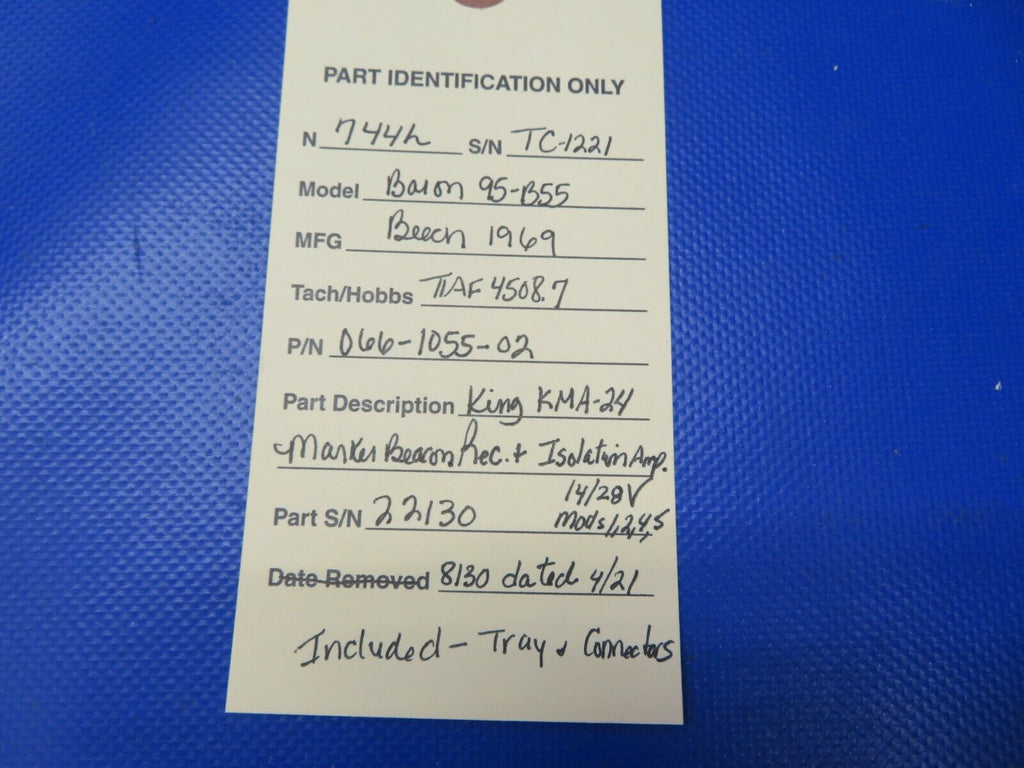 PART IDENTIFICATION ONLY
N 744L S/N TC-1221
Model Baron 95-B55
MFG Beech 1969
Tach/Hobbs TTAF 4508.7
P/N 066-1055-02
Part Description King KMA-24
Marker Beacon Rec. + Isolation Amp.
14/28V
Part S/N 22130 Mods 1,2,4,5
Date Removed 8130 dated 4/21
Included - Tray & Connectors